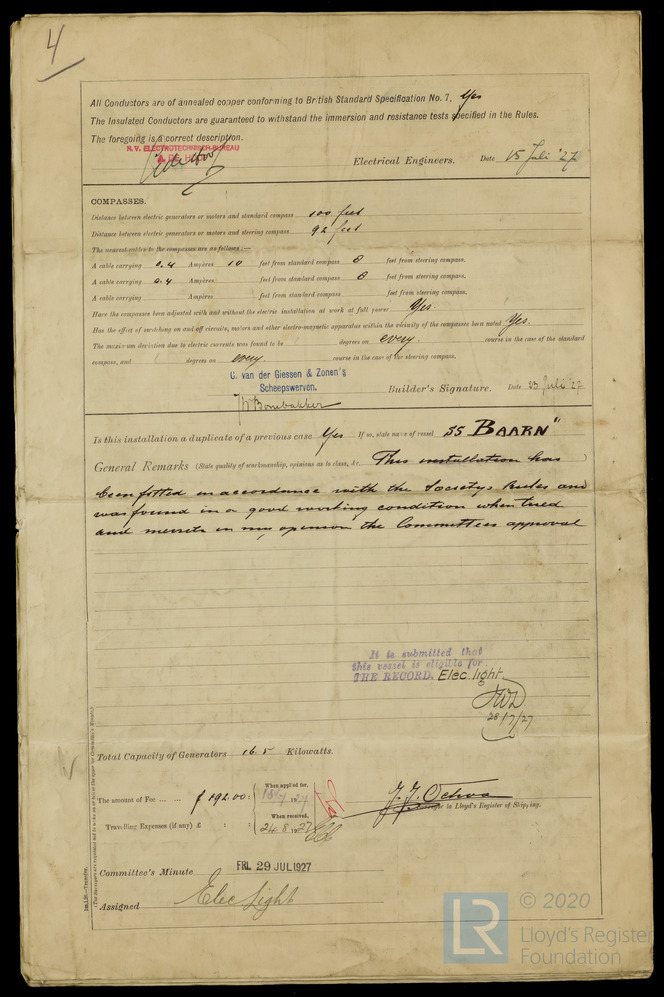 4
All Conductors are of annealed copper conforming to British Standard Specification No. 7. Yes
The Insulated Conductors are guaranteed to withstand the immersion and resistance tests specified in the Rules.
The foregoing is a correct description.
N.V. ELECTROTECHNISCH-BUREAU
Electrical Engineers. Date 15 Juli '27
COMPASSES.
Distance between electric generators or motors and standard compass 100 feet
Distance between electric generators or motors and steering compass 92 feet
The nearest cables to the compasses are as follows:—
A cable carrying 0.4 Ampères 10 feet from standard compass 8 feet from steering compass.
A cable carrying 0.4 Ampères feet from standard compass 8 feet from steering compass.
A cable carrying Ampères feet from standard compass feet from steering compass.
Have the compasses been adjusted with and without the electric installation at work at full power Yes
Has the effect of switching on and off circuits, motors and other electro-magnetic apparatus within the vicinity of the compasses been noted Yes.
The maximum deviation due to electric currents was found to be degrees on every course in the case of the standard
compass, and degrees on every course in the case of the steering compass.
C. van der Giessen & Zonen's
Scheepswerven.
Builder's Signature. Date 23 Juli '27
Is this installation a duplicate of a previous case Yes If so, state name of vessel SS BAARN"
General Remarks (State quality of workmanship, opinions as to class, &c. This installation has
been fitted in accordance with the Society's Rules and
was found in a good working condition when tried
and merits in my opinion the Committees approval
It is submitted that
this vessel is eligible for
THE RECORD. Elec. light
28/7/27
Total Capacity of Generators 16.5 Kilowatts.
The amount of Fee ... ... ƒ 192.00:
When applied for,
Travelling Expenses (if any) £ : :
When received,
24.8.1927
J. J. Ochoa
Surveyor to Lloyd's Register of Shipping.
Committee's Minute FRI. 29 JUL 1927
Assigned Elec Light
© 2020
LR
Lloyd's Register
Foundation